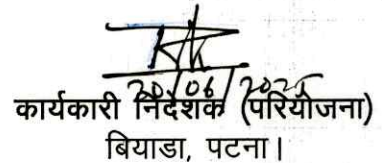 20/06/2025
कार्यकारी निदेशक (परियोजना)
बियाडा, पटना।